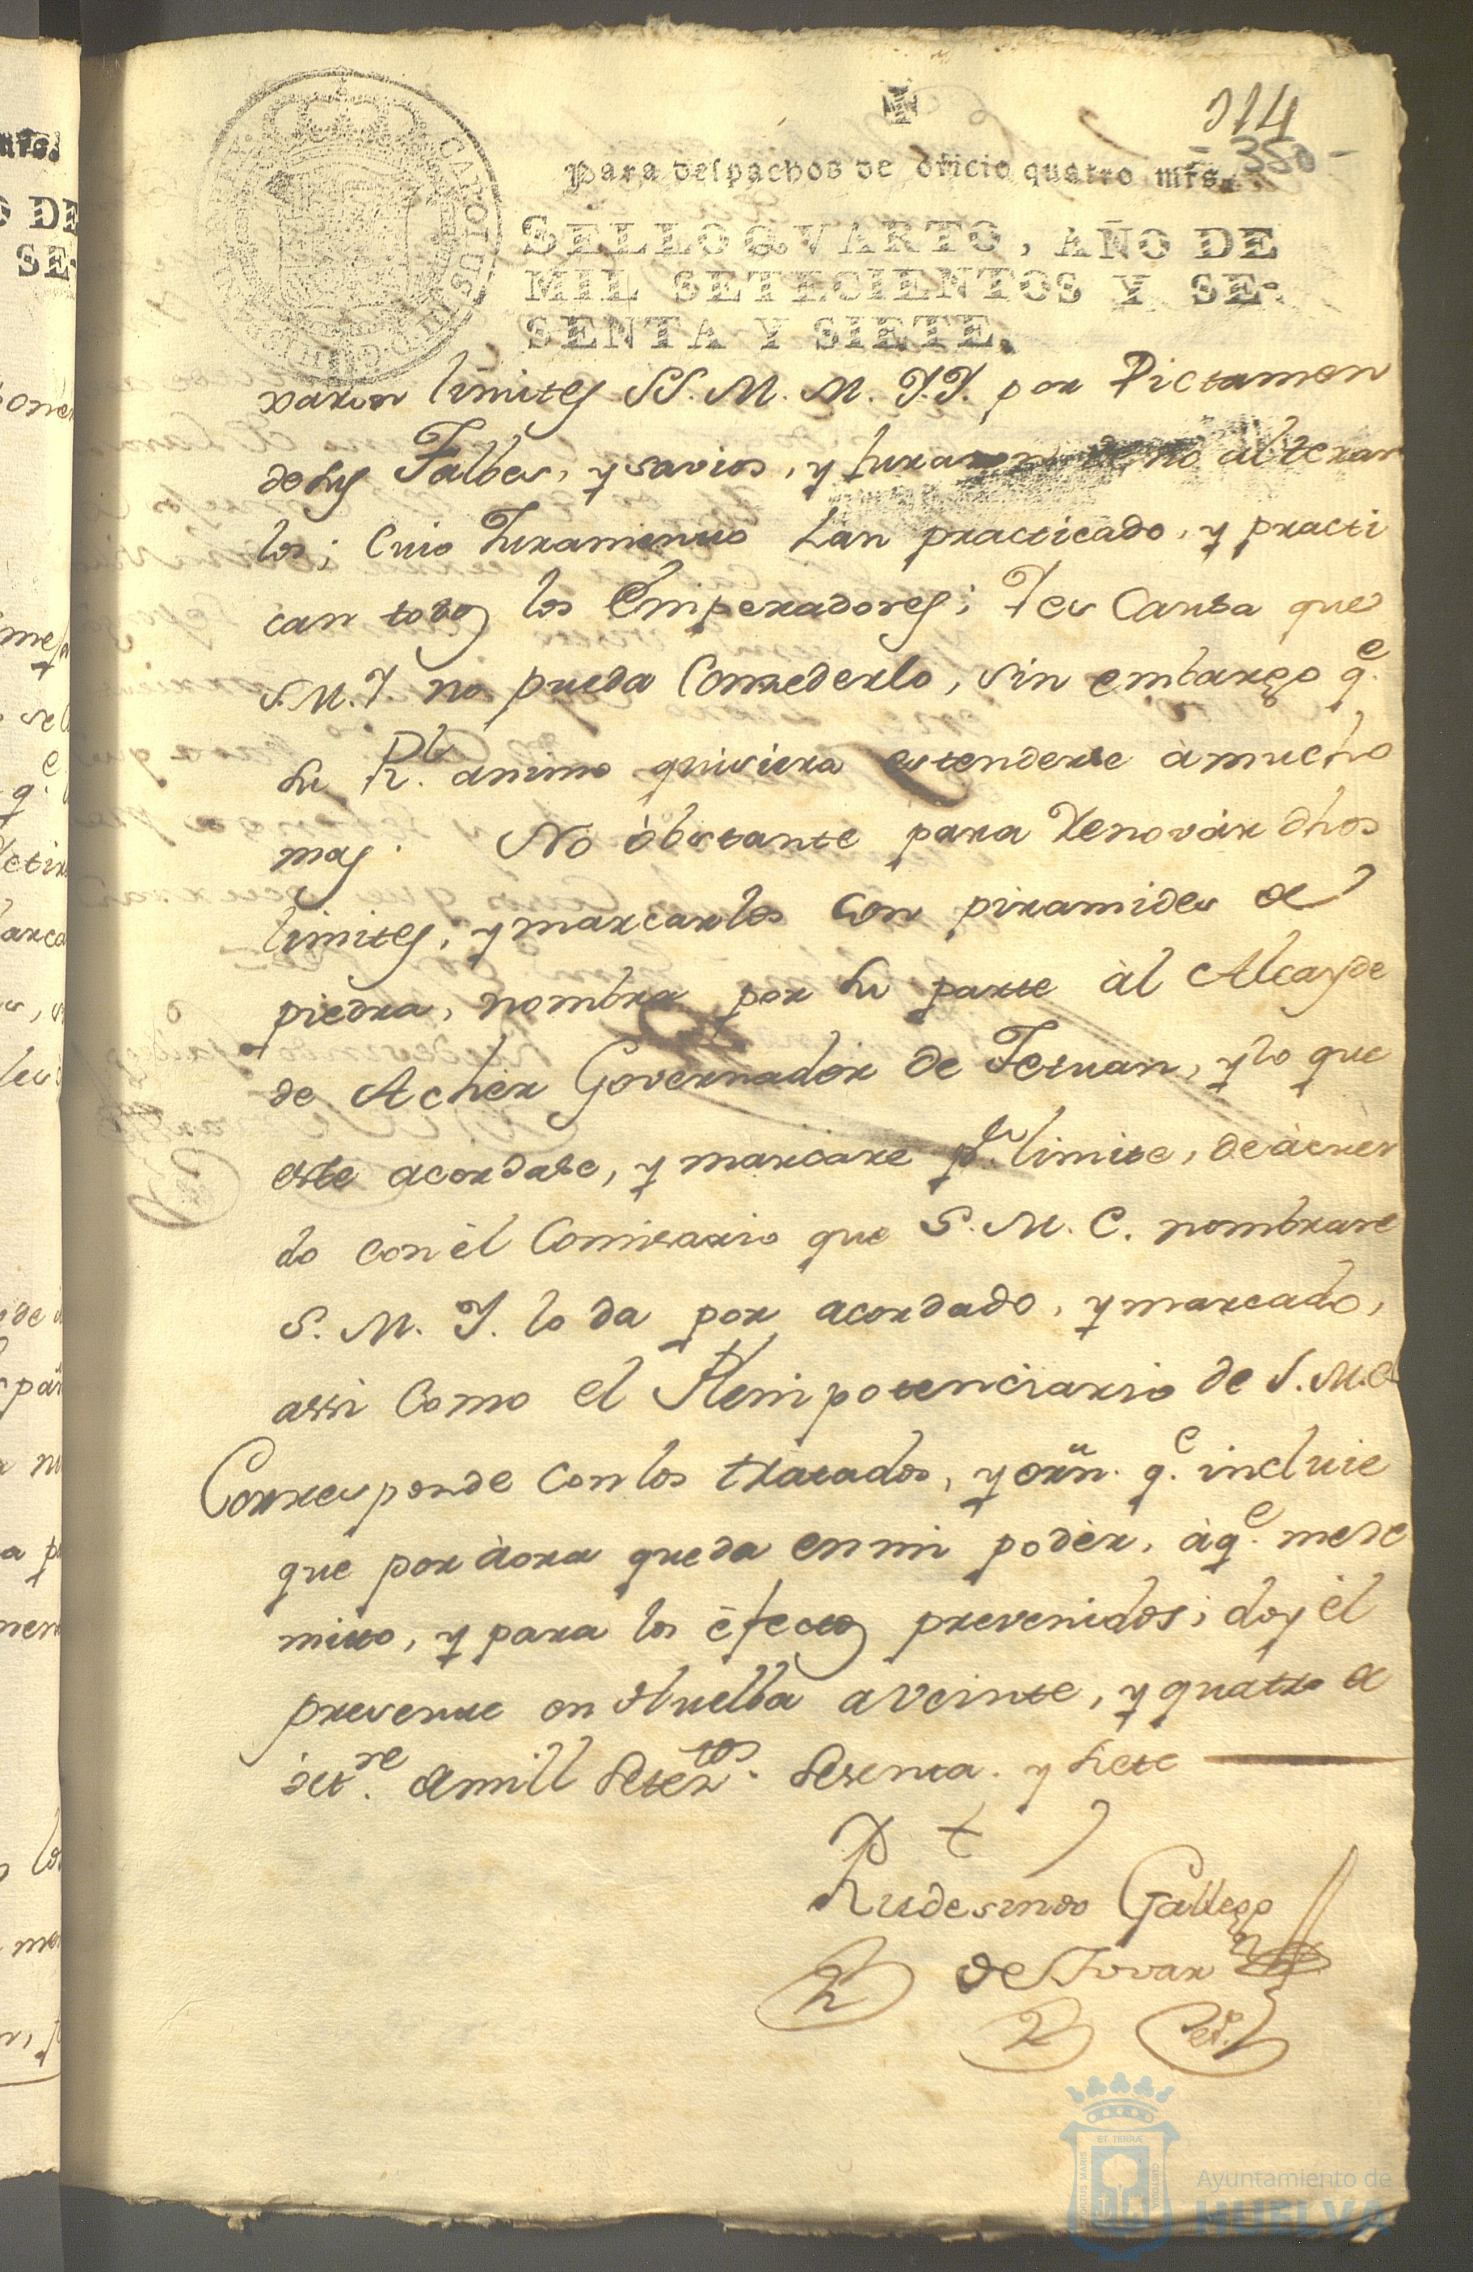 314
350
Para despachos de oficio quatro mrs.
SELLO QVARTO, AÑO DE
MIL SETECIENTOS Y SE-
SENTA Y SIETE.
CAROLUS III D G HISPANIAR
xaron limites SS. M. M. I.I. por Dictamen
de sus Talbes, y savios, y juraron de no alterar
los; cuio Juramento han practicado, y practi
can todos los Emperadores; Y es Causa que
S.M.I no pueda Conzederlo, sin embargo q.e
su R.l animo quisiera estenderse à mucho
mas. No óbstante para Renovàr dhos
limites, y marcarlos con piramides de
piedra, nombra por su parte àl Alcayde
de Achèr Governador de Tetuan, y lo que
este acordase, y marcare p.r limite, de àcuer
do con èl Comisario que S. M. C. nombrare
S. M. I. lo da por acordado, y marcado,
assi Como el Plenipotenciario de S. M. C
Corresponde con los tratados, y orñ. q.e incluie
que por àora queda en mi podèr, à q.e me re
mito, y para los éfectos prevenidos; doy èl
presente en Huelba a veinte, y quatro de
òct.re de mill setez.tos sesenta y siete
Rudesindo Gallego
de Tovar